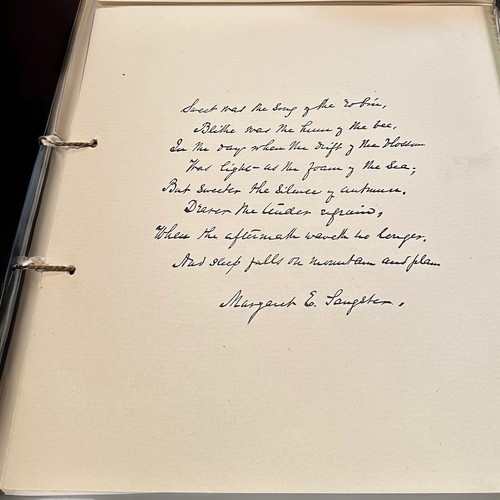 Sweet was the song of the robin,
Blithe was the hum of the bee,
In the day when the drift of the blossom
Was light as the foam of the sea;
But sweeter the silence of autumn,
Dearer the tender refrain,
When the aftermath waveth no longer,
And sleep falls on mountain and plain
Margaret E. Sangster.